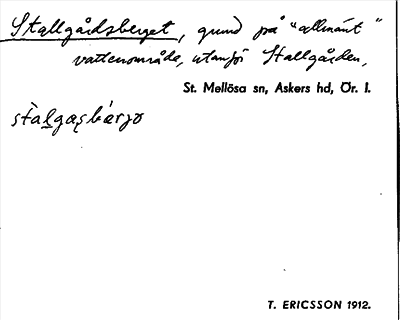 Stallgårdsberget, grund på "allmänt"
vattenområde, utanför Stallgården,
St. Mellösa sn, Askers hd, Ör. l.
T. ERICSSON 1912.